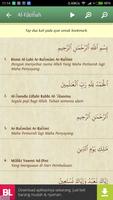 11:14
Al-Fātiḥah
Tap dua kali pada ayat untuk bookmark.
بِسْمِ اللَّهِ الرَّحْمَٰنِ الرَّحِيمِ
Bismi Al-Lahi Ar-Raĥmāni Ar-Raĥīmi
Dengan menyebut nama Allah Yang Maha Pemurah lagi
Maha Penyayang.
الْحَمْدُ لِلَّهِ رَبِّ الْعَالَمِينَ
Al-Ĥamdu Lillahi Rabbi Al-`Ālamīna
Segala puji bagi Allah, Tuhan semesta alam.
الرَّحْمَٰنِ الرَّحِيمِ
Ar-Raĥmāni Ar-Raĥīmi
Maha Pemurah lagi Maha Penyayang.
مَالِكِ يَوْمِ الدِّينِ
Māliki Yawmi Ad-Dīni
Yang menguasai di Hari Pembalasan.
BL
Download aplikasinya sekarang, jual beli
barang mudah & nyaman.